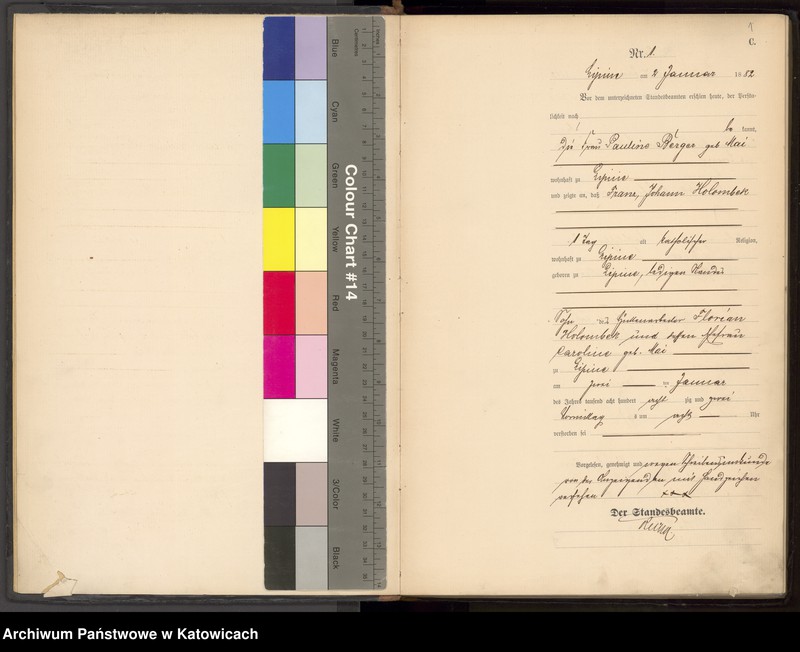 Blue
Cyan
Green
Yellow
Red
Magenta
White
3/Color
Black
Colour Chart #14
Centimetres
Inches
1
C.
Nr. 1.
Lipine am 2 Januar 1882
Vor dem unterzeichneten Standesbeamten erschien heute, der Persön-
lichkeit nach
be kannt,
die Frau Pauline Berger geb Mai
wohnhaft zu Lipine
und zeigte an, daß Franz, Johann Holombek
1 Tag alt katholischer Religion,
wohnhaft zu Lipine
geboren zu Lipine, ledigen Standes
Sohn des Hüttenarbeiter Florian
Holombek und dessen Ehefrau
Caroline geb. Mai
zu Lipine
am zwei ten Januar
des Jahres tausend acht hundert acht zig und zwei
Vormittag s um acht Uhr
verstorben sei
Vorgelesen, genehmigt und wegen Schreibensunkunde
von der Anzeigenden mit Handzeichen
versehen +++
Der Standesbeamte.
Archiwum Państwowe w Katowicach